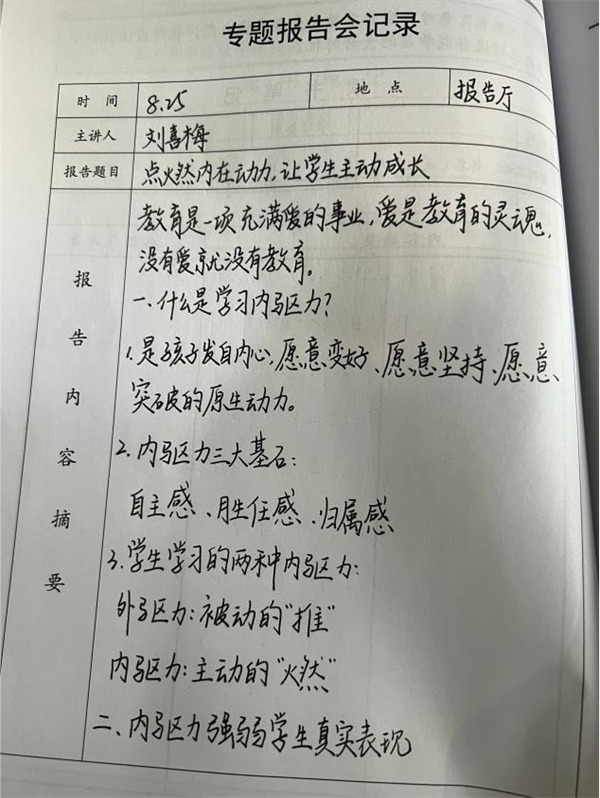 专题报告会记录
时间 8.25 地点 报告厅
主讲人 刘喜梅
报告题目 点燃内在动力,让学生主动成长
报告内容摘要
教育是一项充满爱的事业,爱是教育的灵魂,
没有爱就没有教育。
一、什么是学习内驱力?
1.是孩子发自内心,愿意变好、愿意坚持、愿意
突破的原生动力。
2.内驱力三大基石:
自主感、胜任感、归属感
3.学生学习的两种内驱力:
外驱力:被动的“推”
内驱力:主动的“燃”
二、内驱力强弱学生真实表现